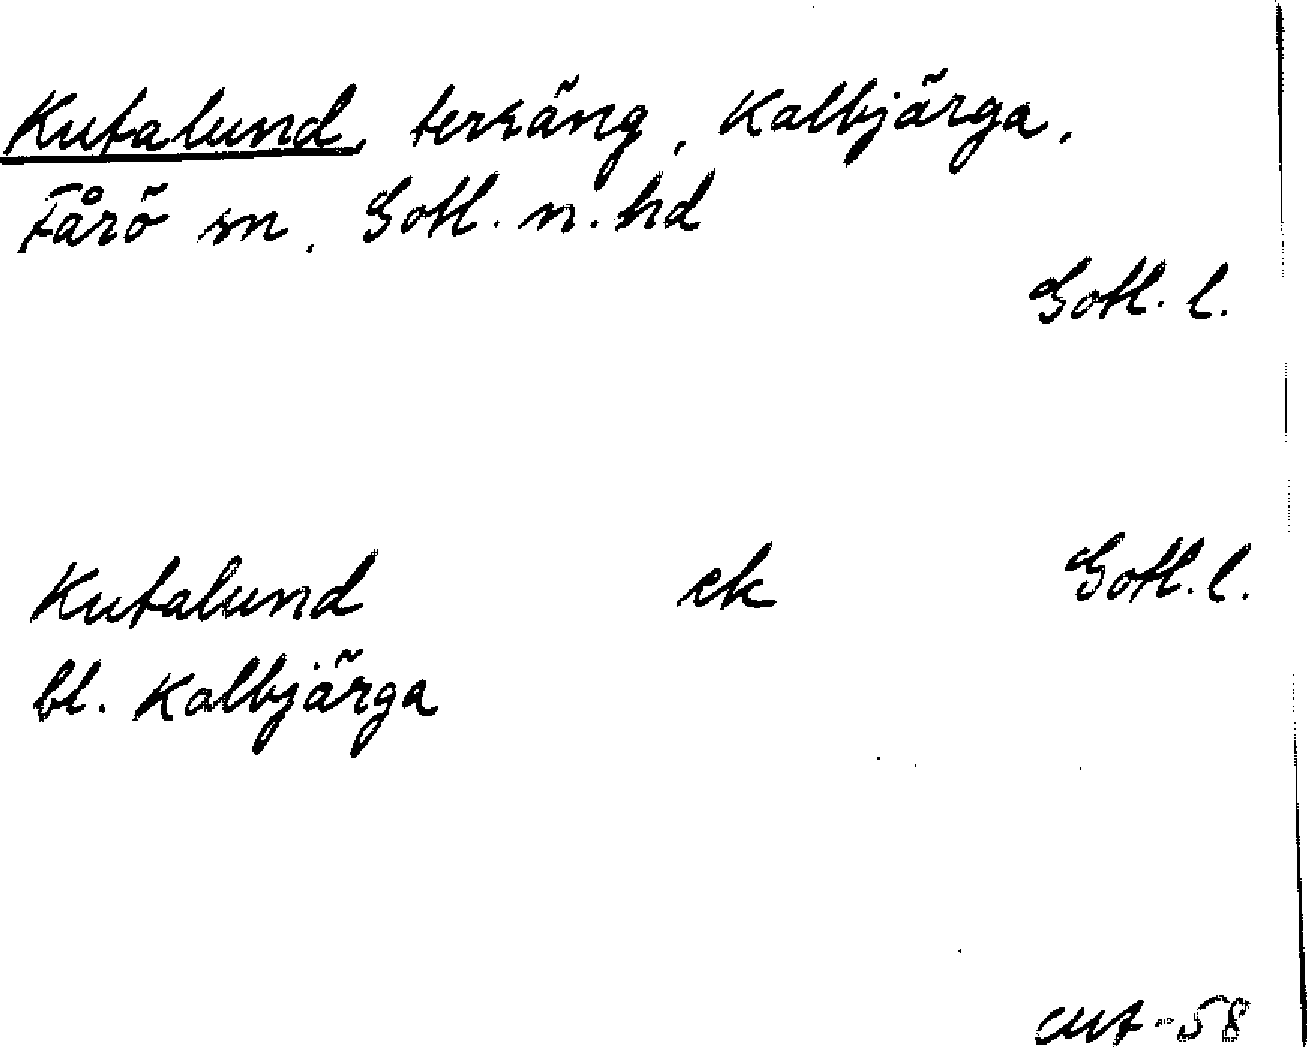 Kutalund, terräng, Kalbjärga,
Fårö sn, Gotl. n. hd
Gotl. l.
Kutalund ek Gotl. l.
bl. Kalbjärga
-58